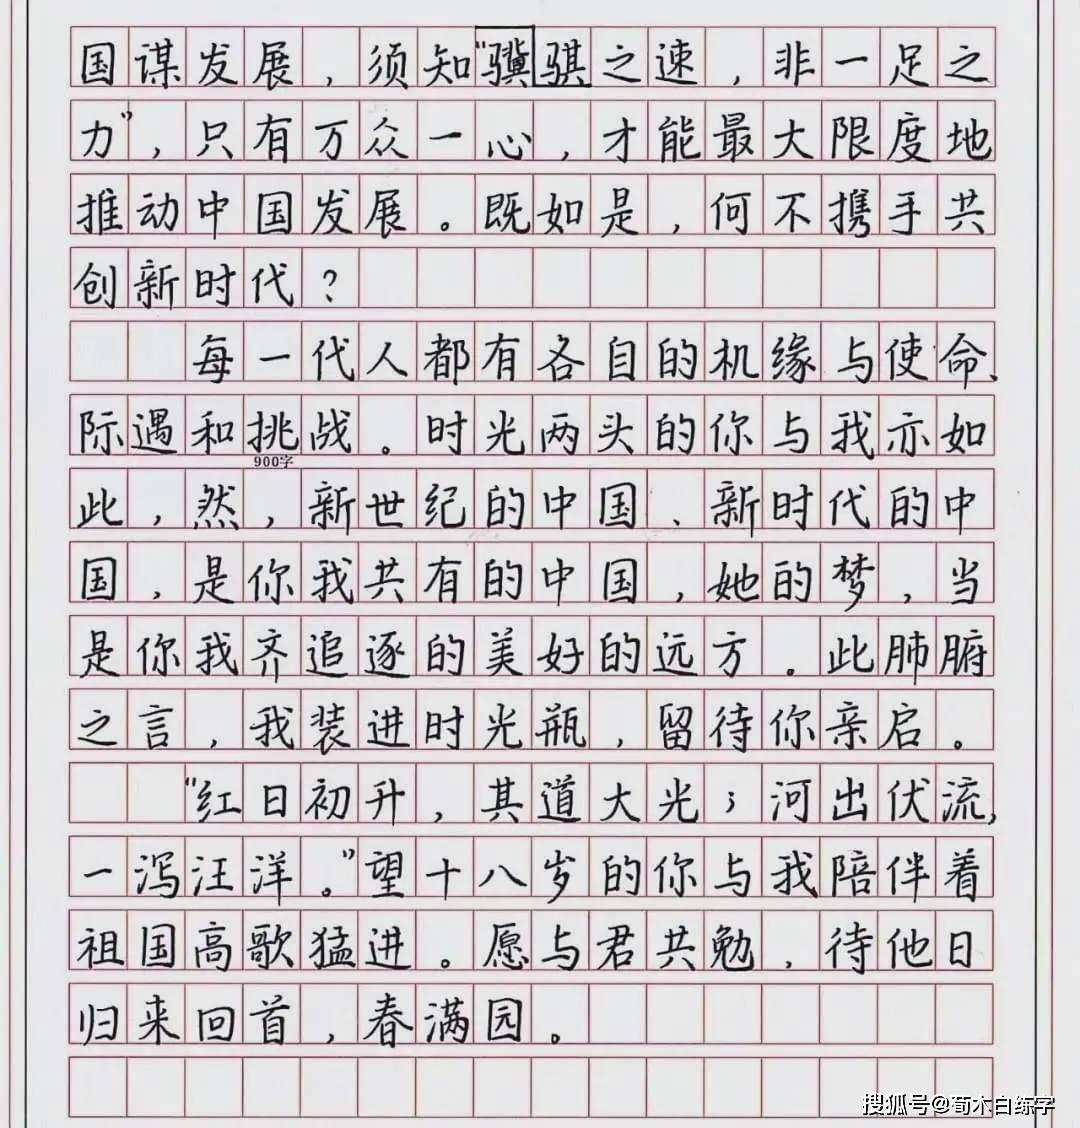 国谋发展，须知“骥骐之速，非一足之
力”，只有万众一心，才能最大限度地
推动中国发展。既如是，何不携手共
创新时代？
每一代人都有各自的机缘与使命、
际遇和挑战。时光两头的你与我亦如
900字
此，然，新世纪的中国、新时代的中
国，是你我共有的中国，她的梦，当
是你我齐追逐的美好的远方。此肺腑
之言，我装进时光瓶，留待你亲启。
“红日初升，其道大光；河出伏流，
一泻汪洋。”望十八岁的你与我陪伴着
祖国高歌猛进。愿与君共勉，待他日
归来回首，春满园。
搜狐号@荀木白练字